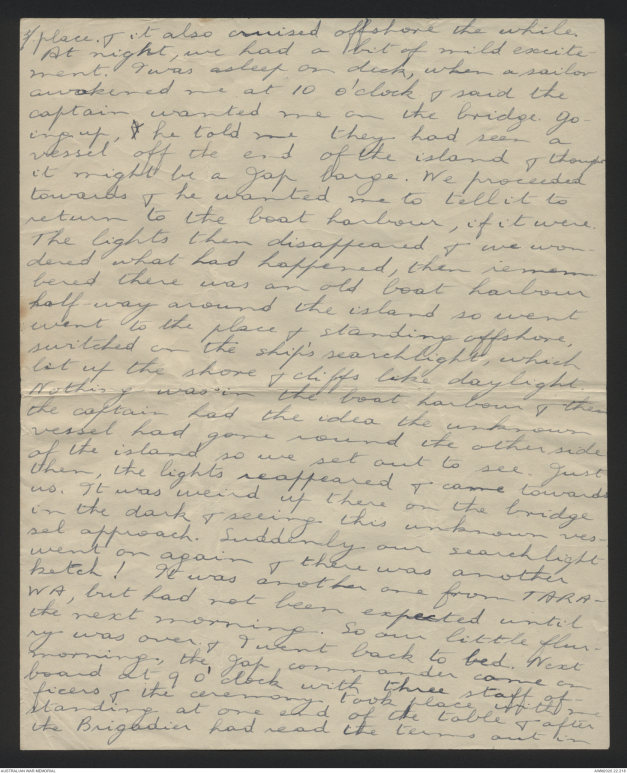 4/place. & it also cruised offshore the while.
At night, we had a bit of mild excite-
ment. I was asleep on deck, when a sailor
awakened me at 10 o'clock & said the
captain wanted me on the bridge. Go-
ing up, & he told me they had seen a
vessel off the end of the island & thought
it might be a Jap barge. We proceeded
towards & he wanted me to tell it to
return to the boat harbour, if it were.
The lights then disappeared & we won-
dered what had happened, then remem-
bered there was an old boat harbour
half-way around the island so went
went to the place & standing offshore,
switched on the ship's searchlight, which
lit up the shore & cliffs like daylight.
Nothing was in the boat harbour & then
the captain had the idea the unknown
vessel had gone round the other side
of the island so we set out to see. Just
then, the lights reappeared & came towards
us. It was weird up there on the bridge
in the dark & seeing this unknown ves-
sel approach. Suddenly our searchlight
went on again & there was another
ketch! It was another one from TARA-
WA, but had not been expected until
the next morning. So our little flur-
ry was over & I went back to bed. Next
morning, the Jap commander came on
board at 9 o'clock with three staff of-
ficers & the ceremony took place with me
standing at one end of the table & after
the Brigadier had read the terms out in
AUSTRALIAN WAR MEMORIAL